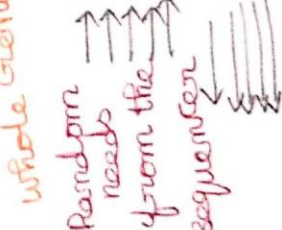 whole
Random
needs
from the
sequencer